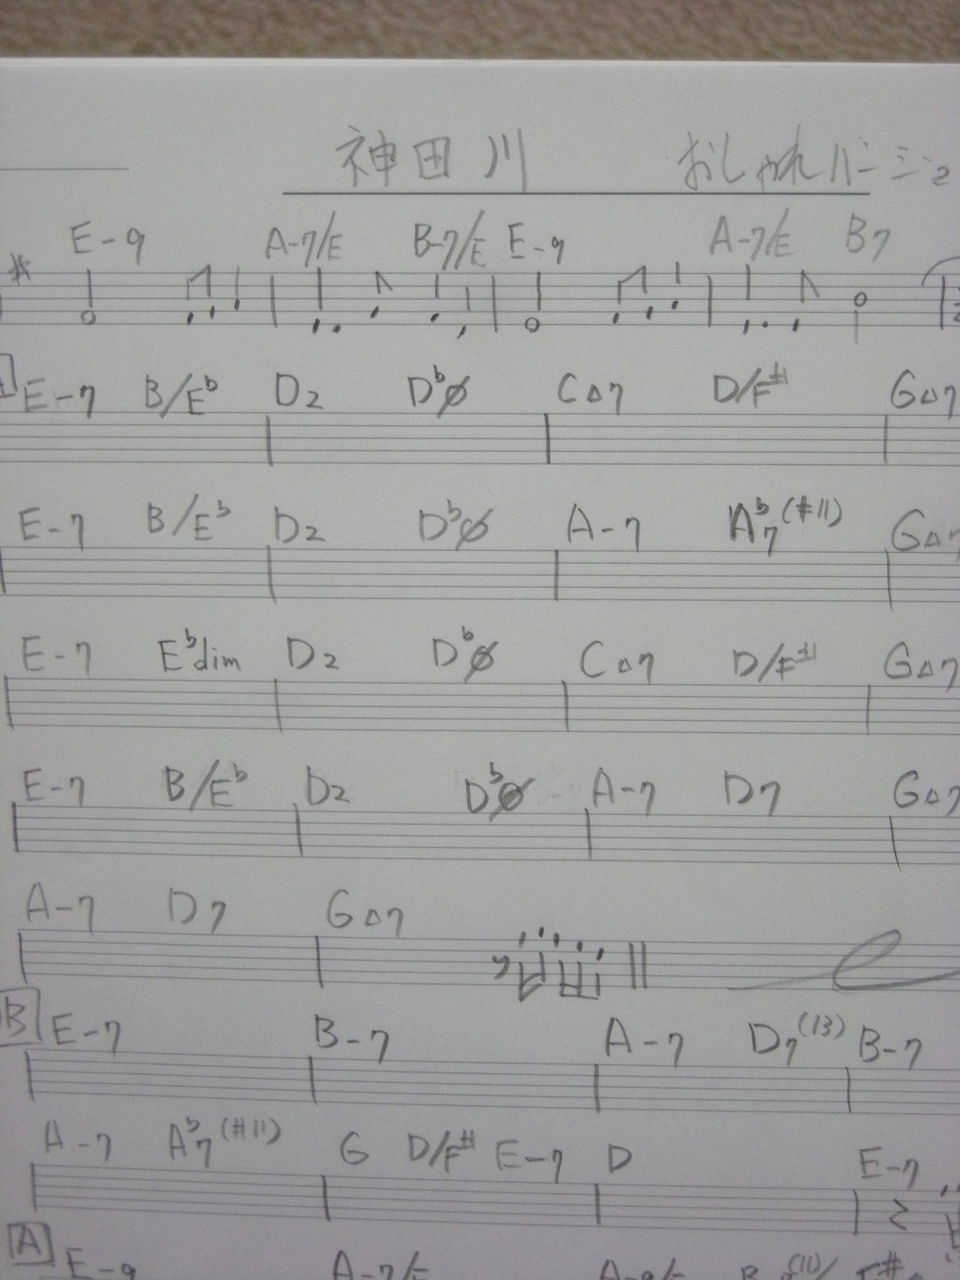 神田川 おしゃれバージョン
E-9 A-7/E B-7/E E-9 A-7/E B7
E-7 B/E♭ D2 D♭ø C△7 D/F# G△7
E-7 B/E♭ D2 D♭ø A-7 A♭7(#11) G△7
E-7 E♭dim D2 D♭ø C△7 D/F# G△7
E-7 B/E♭ D2 D♭ø A-7 D7 G△7
A-7 D7 G△7
B E-7 B-7 A-7 D7(13) B-7
A-7 A♭7(#11) G D/F# E-7 D E-7
A E-9 A-7/E